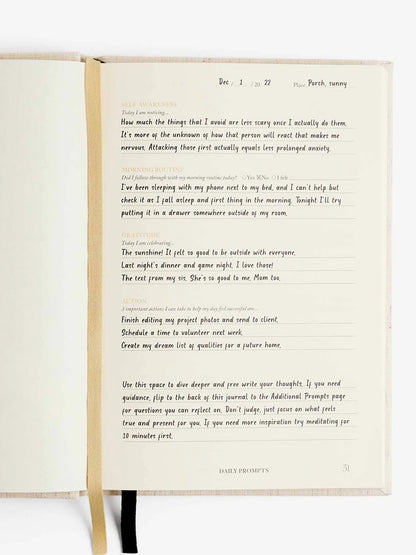 Dec / 1 / 20 22 Place Porch, sunny
SELF-AWARENESS
Today I am noticing...
How much the things that I avoid are less scary once I actually do them.
It's more of the unknown of how that person will react that makes me
nervous. Attacking those first actually equals less prolonged anxiety.
MORNING ROUTINE
Did I follow through with my morning routine today? ○Yes ⓧNo ○I felt
I've been sleeping with my phone next to my bed, and I can't help but
check it as I fall asleep and first thing in the morning. Tonight I'll try
putting it in a drawer somewhere outside of my room.
GRATITUDE
Today I am celebrating...
The sunshine! It felt so good to be outside with everyone.
Last night's dinner and game night, I love those!
The text from my sis. She's so good to me. Mom too.
ACTION
3 important actions I can take to help my day feel successful are...
Finish editing my project photos and send to client.
Schedule a time to volunteer next week.
Create my dream list of qualities for a future home.
Use this space to dive deeper and free write your thoughts. If you need
guidance, flip to the back of this journal to the Additional Prompts page
for questions you can reflect on. Don't judge, just focus on what feels
true and present for you. If you need more inspiration try meditating for
10 minutes first.
DAILY PROMPTS 31